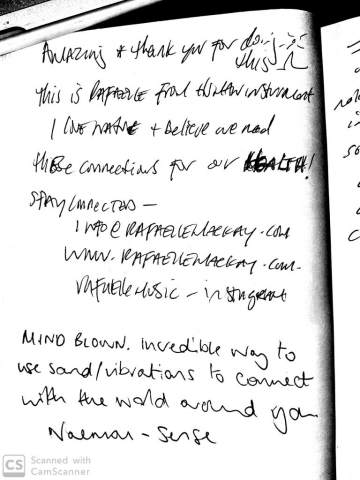 AMAZING + thank you for doing
this
this is RAFAELLE from HUMAN INSTRUMENT
I LOVE NATURE + believe we need
these connections for our HEALTH!
STAY CONNECTED –
INFO@RAFAELLEMACKAY.COM
WWW.RAFAELLEMACKAY.COM
RAFAELLEMUSIC – instagram
MIND BLOWN. Incredible way to
use sound/vibrations to connect
with the world around you.
– Sense
CS Scanned with
CamScanner